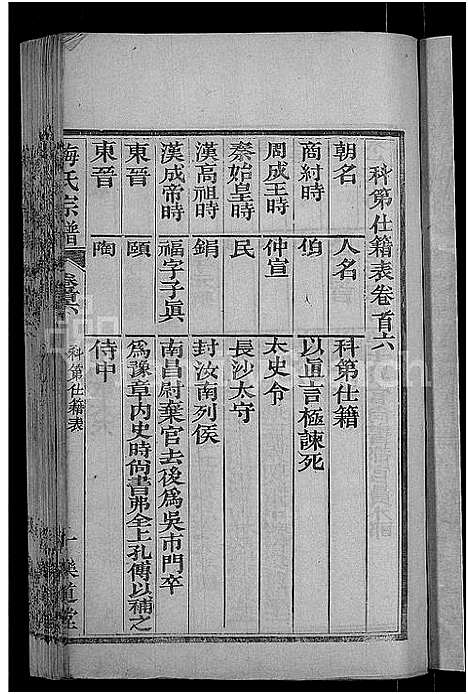 科第仕籍表卷首六
朝名 人名 科第仕籍
商紂時 伯 以直言極諫死
周成王時 仲宣 太史令
秦始皇時 民 長沙太守
漢高祖時 鋗 封汝南列侯
漢成帝時 福字子眞 南昌尉棄官去後爲吳市門卒
東晉 頤 爲豫章内史時尙書弗全上孔傳以補之
東晉 陶 侍中
梅氏宗譜 卷首六 科第仕籍表 一 樂道堂